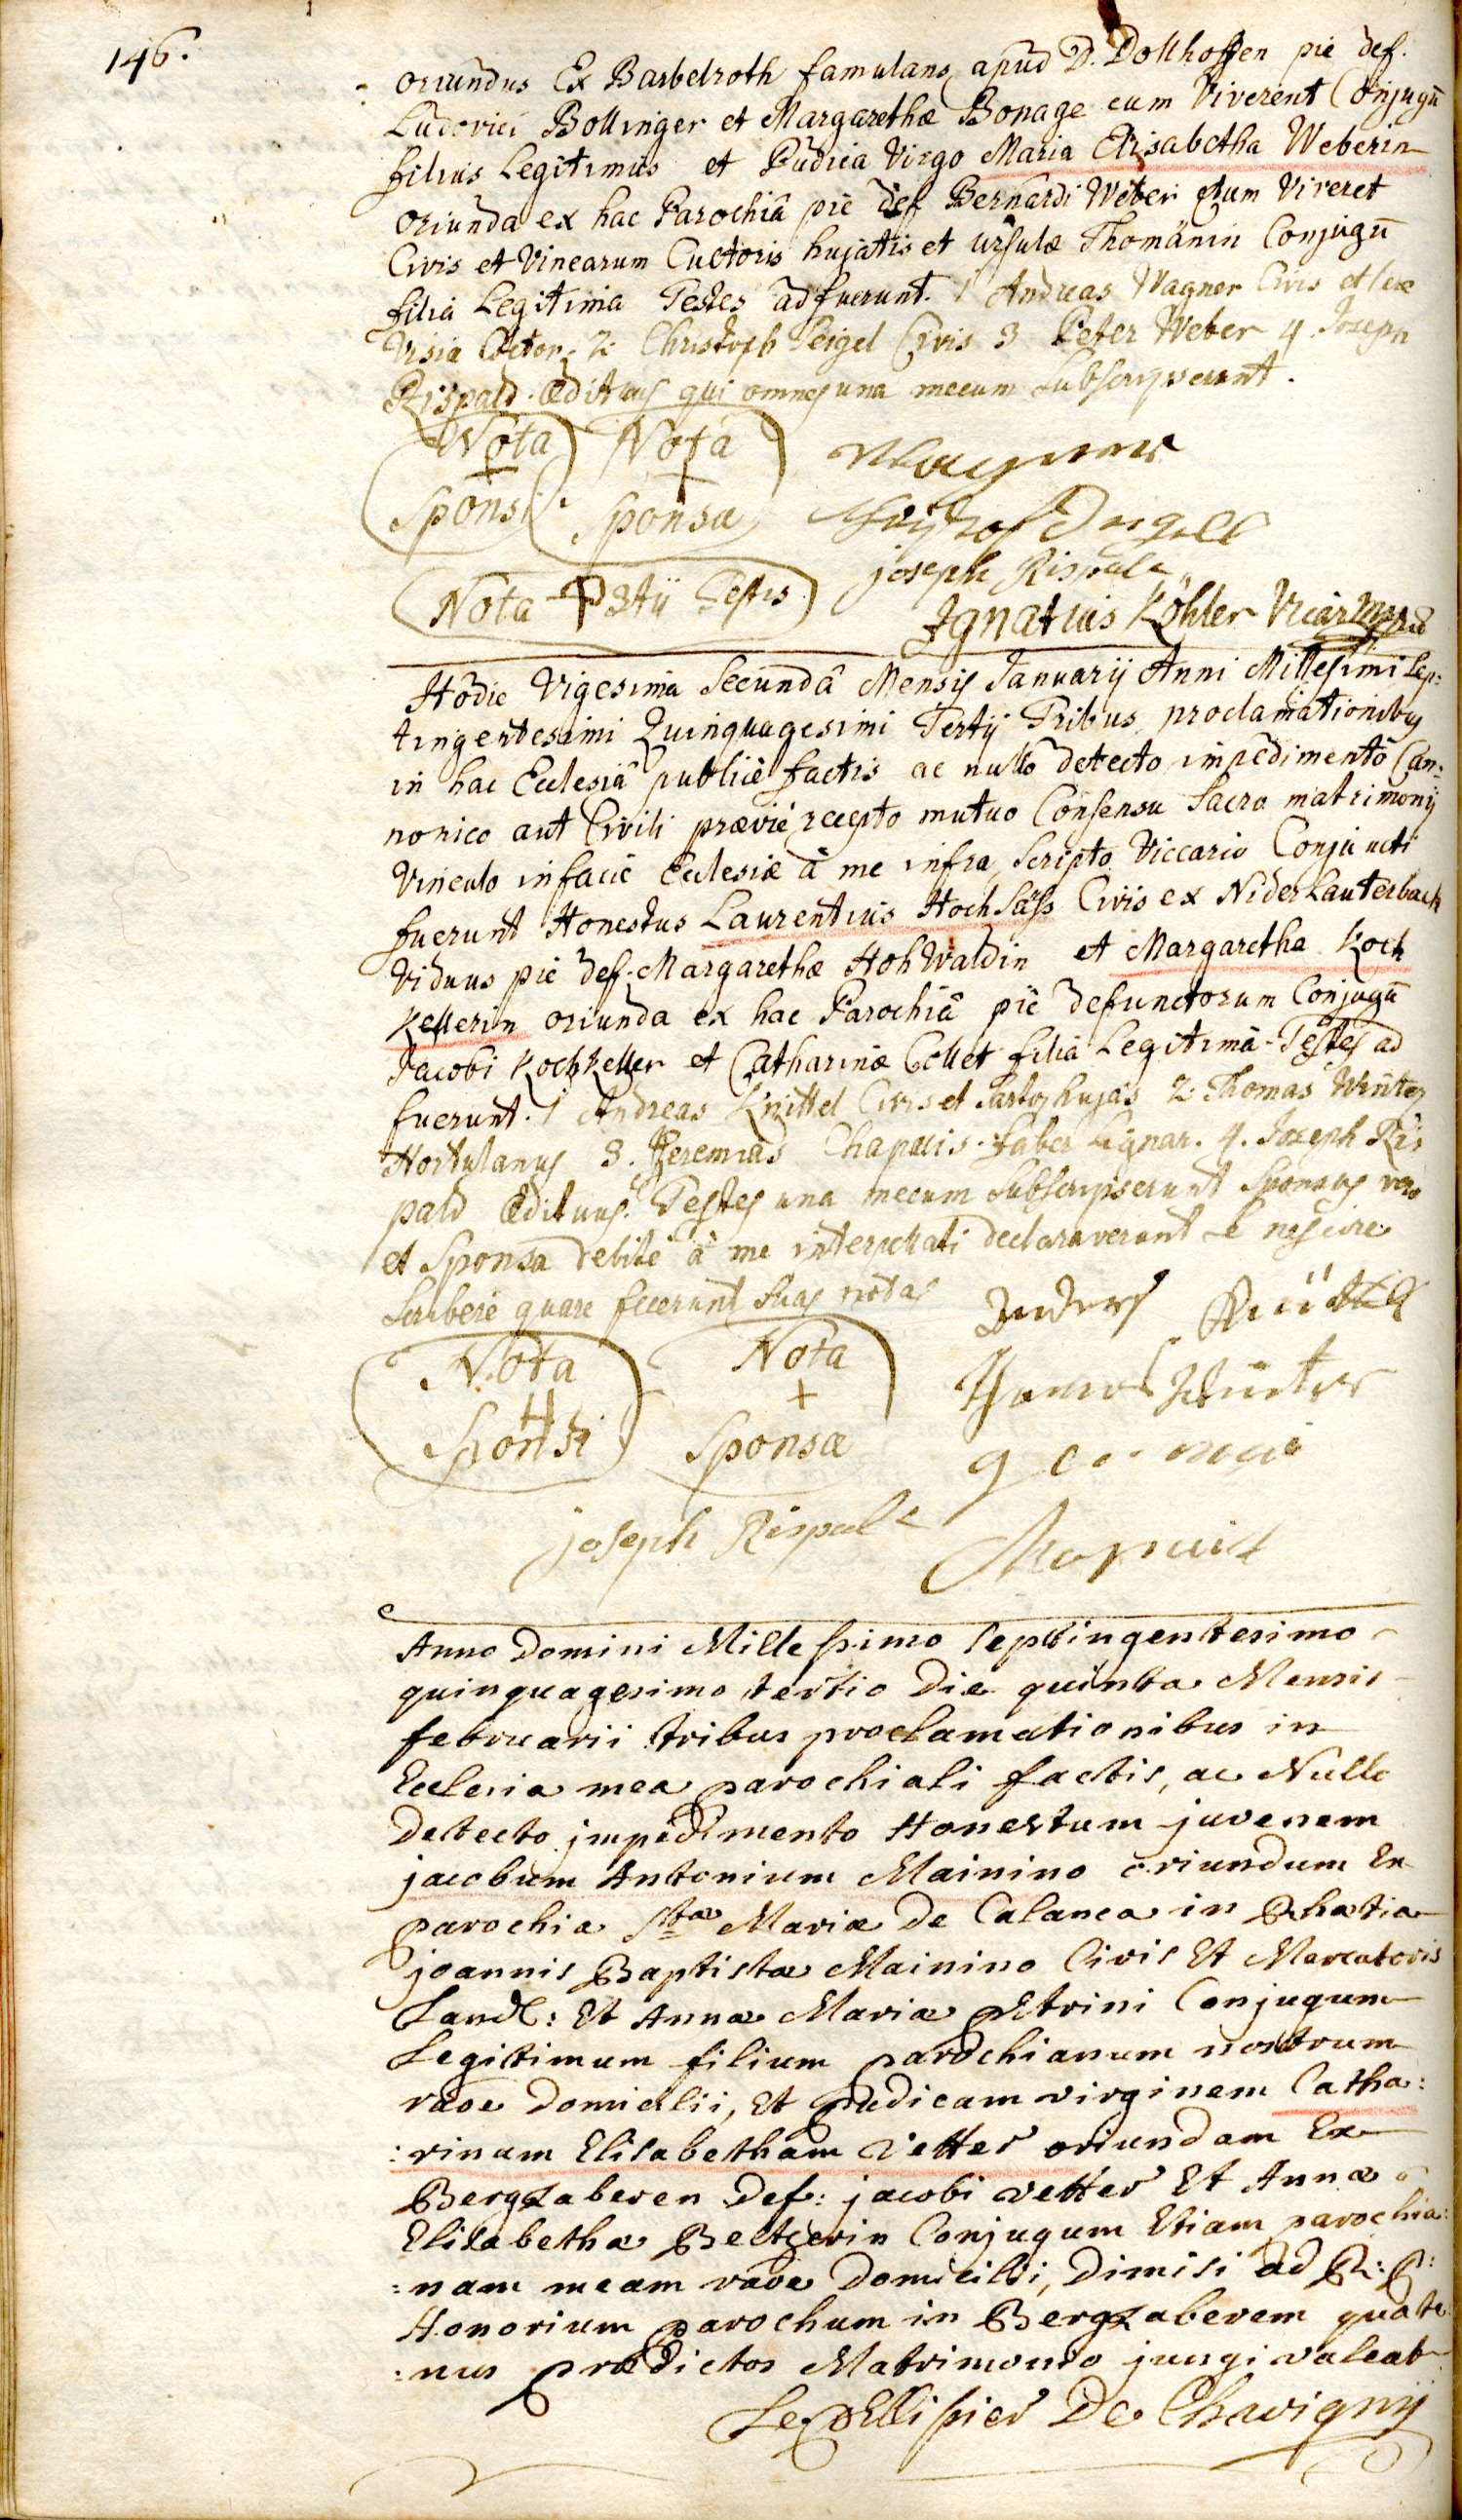 146.
oriundus Ex Barbelroth famulans apud D. Dollhoffen pie def.
Ludovici Bollinger et Margarethæ Bonage cum Viverent Conjugũ
filius Legitimus et Pudica Virgo Maria Elisabetha Weberin
oriunda ex hac Parochiâ pie def Bernardi Weber dum Viveret
Civis et Vinearum Cultoris hujatis et Ursulæ Thomänin Conjugũ
filia Legitima Testes adfuerunt. 1 Andreas Wagner Civis et
2: Christoph Civis 3 Peter Weber 4. Joseph
Rispald Ædituus qui omnes una mecum Subscripserunt.
Nota Nota
+ +
Sponsi Sponsæ
Wagner
joseph Rispald
Nota + 3tii Testis
Ignatius Köhler Vicar
Hodie Vigesima Secundâ Mensis Januarij Anni Millesimi Sep:
tingentesimi Quinquagesimi Tertij Tribus proclamationibus
in hac Ecclesiâ publicè factis ac nullo detecto impedimento Can:
nonico aut Civili prævie recepto mutuo Consensu Sacro matrimonij
Vinculo in facie Ecclesiæ à me infra Scripto Viccario Conjuncti
fuerunt Honestus Laurentius HochSäss Civis ex Nider Lauterbach
Viduus pie def. Margarethæ HohWaldin et Margaretha Koch
Kellerin oriunda ex hac Parochiâ piè defunctorum Conjugũ
Jacobi KochKeller et Catharinæ Collet filia Legitima. Testes ad
fuerunt. 1 Andreas Knittel Civis et Sartor hujas 2: Thomas Winter
Hortulanus 3. Jeremias Chapuis. faber Lignar. 4. Joseph Ris
pald Ædituus. Testes una mecum Subscripserunt Sponsus vero
et Sponsa debite à me interpellati declaraverunt se nescire
Scribere quare fecerunt Suas notas
Nota Nota
H +
Sponsi Sponsæ
Winter
joseph Rispald
Chapuis
Anno Domini Millessimo Septingentesimo
quinquagesimo tertio Die quinta Mensis
februarii tribus proclamationibus in
Ecclesia mea parochiali factis, ac Nullo
Detecto impedimento Honestum juvenem
jacobum Antonium Mainino oriundum Ex
parochia Stæ Mariæ De Calanca in Rhætia
joannis Baptistæ Mainino Civis Et Mercatoris
Et Annæ Mariæ Petrini Conjugum
Legitimum filium parochianum nostrum
raõe Domicilii, Et pudicam virginem Catha:
:rinam Elisabetham Vetter oriundam Ex
Bergzaberen Def: jacobi vetter Et Annæ
Elisabethæ Conjugum Etiam parochia:
:nam meam raõe Domicilii, Dimisi ad R: P:
Honorium parochum in Bergzaberem quate
:nus prædictos Matrimonio jungi valeat
Le Pellissier De Chavignÿ